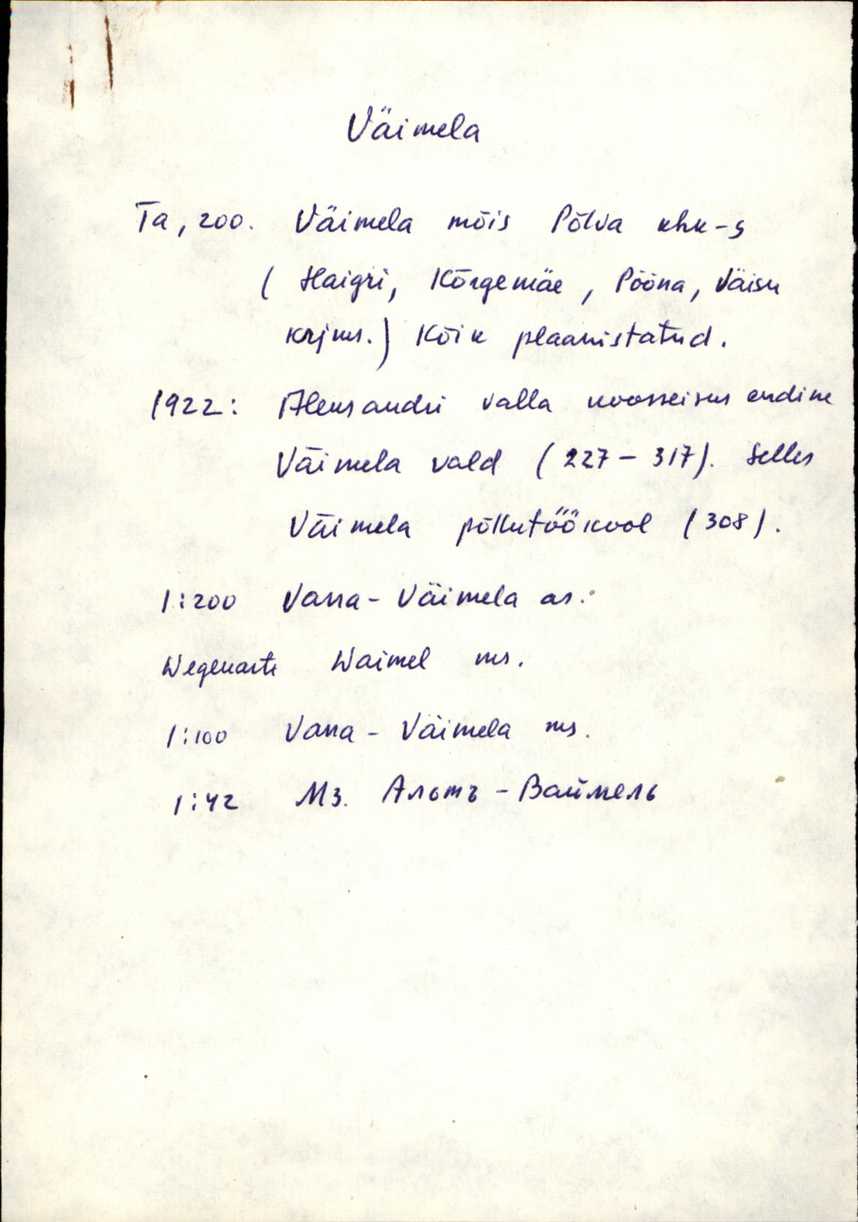 Väimela
Ta, 200. Väimela mõis Põlva khk-s
( Haigri, Kõrgemäe, Pööna, Väisu
krjms.) Kõik plaanistatud.
1922: Aleksandri valla koosseisus endine
Väimela vald (227 – 317). Selles
Väimela põllutöökool (308).
1:200 Vana-Väimela as.
Wegekarte Waimel ms.
1:100 Vana-Väimela ms.
1:42 Мз. Альтъ-Ваймель